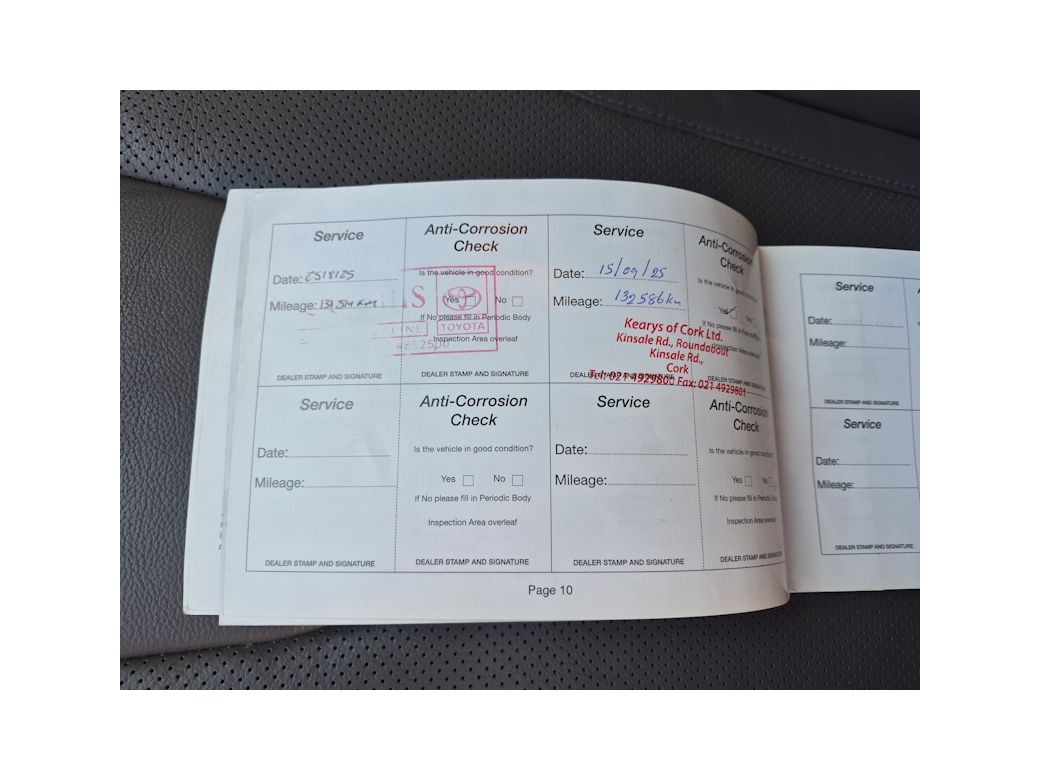 Service
Date: 25/8/25
Mileage: 131,514 km
DEALER STAMP AND SIGNATURE
Anti-Corrosion
Check
Is the vehicle in good condition?
Yes No
If No please fill in Periodic Body
Inspection Area overleaf
TOYOTA
4852500
DEALER STAMP AND SIGNATURE
Service
Date: 15/09/25
Mileage: 132586km
Kearys of Cork Ltd.
Kinsale Rd., Roundabout
Kinsale Rd.,
Cork
Tel: 021 4929800 Fax: 021 4929801
DEALER STAMP AND SIGNATURE
Anti-Corrosion
Check
Is the vehicle in good
Yes No
If No please fill in Periodic Body
Inspection Area overleaf
DEALER STAMP AND SIGNATURE
Service
Date:
Mileage:
DEALER STAMP AND SIGNATURE
Anti-Corrosion
Check
Is the vehicle in good condition?
Yes No
If No please fill in Periodic Body
Inspection Area overleaf
DEALER STAMP AND SIGNATURE
Service
Date:
Mileage:
DEALER STAMP AND SIGNATURE
Anti-Corrosion
Check
Is the vehicle in good
Yes No
If No please fill in Periodic Body
Inspection Area overleaf
DEALER STAMP AND SIGNATURE
Page 10
Service
Date:
Mileage:
DEALER STAMP AND SIGNATURE
Service
Date:
Mileage:
DEALER STAMP AND SIGNATURE